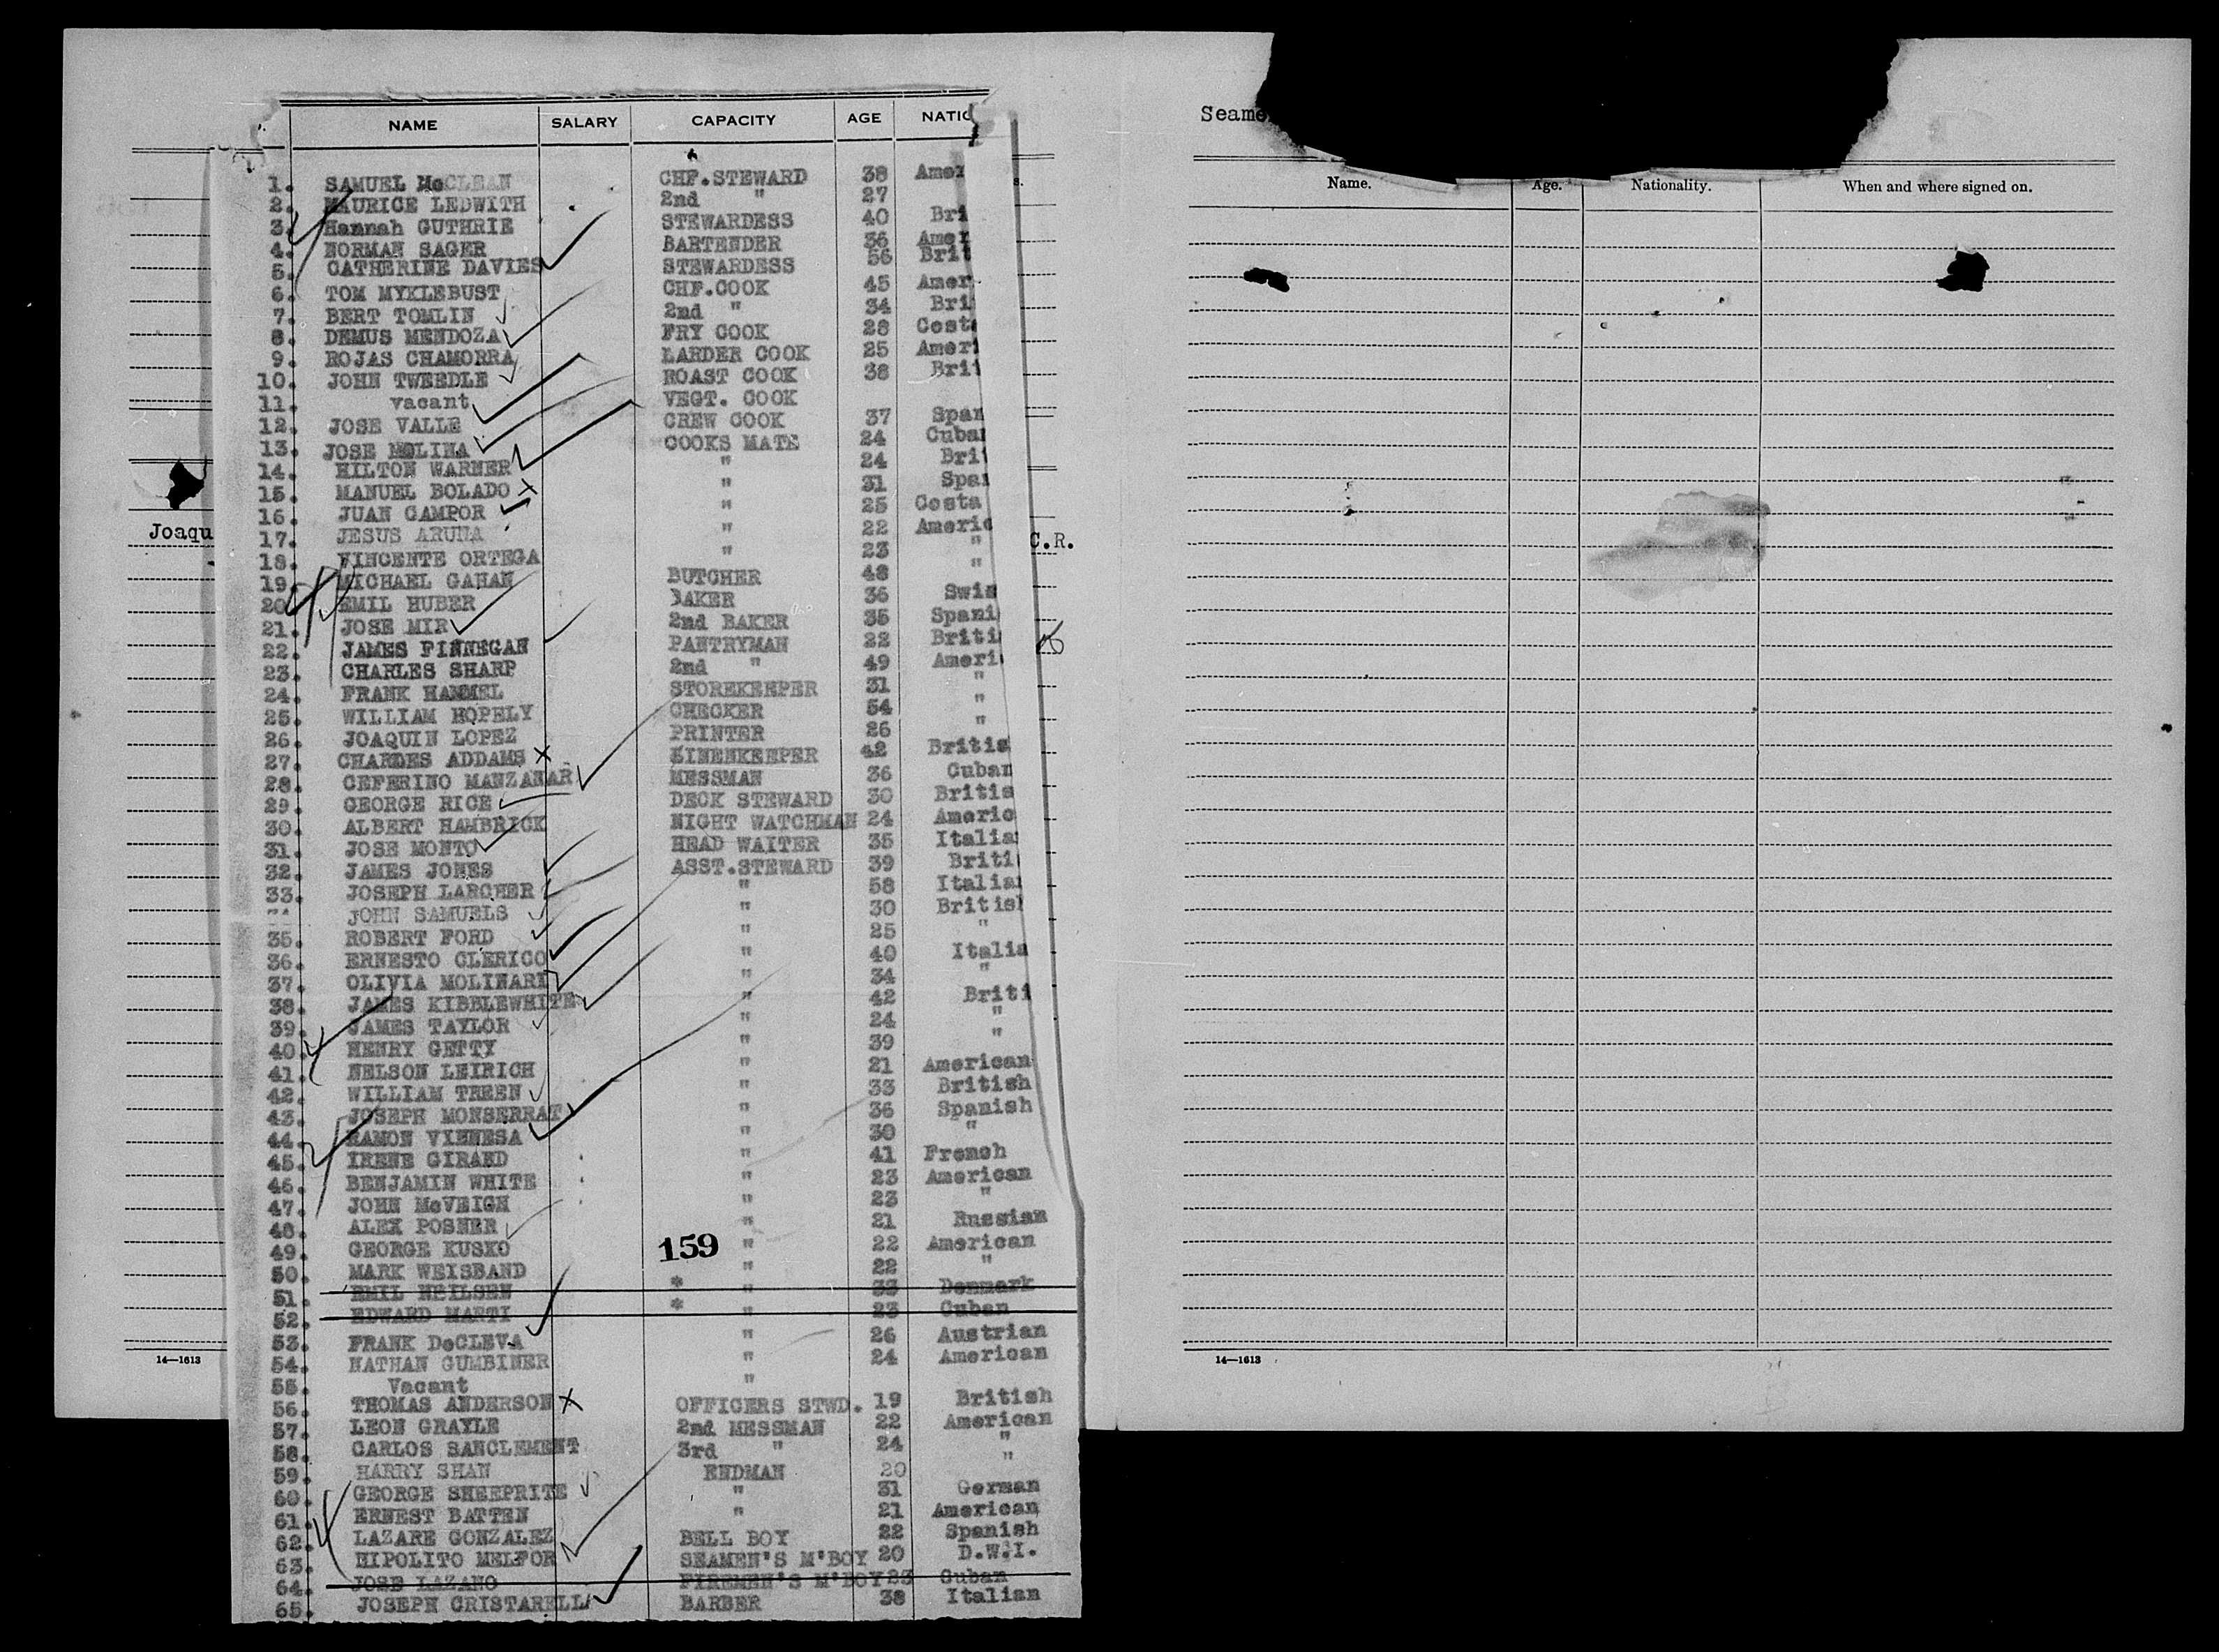 NAME SALARY CAPACITY AGE NATIO
1. SAMUEL McCLEAN CHF.STEWARD 38 Amer
2. MAURICE LEDWITH 2nd " 27
3. Hannah GUTHRIE STEWARDESS 40 Bri
4. NORMAN SAGER BARTENDER 36 Amer
5. CATHERINE DAVIES STEWARDESS 56 Brit
6. TOM MYKLEBUST CHF.COOK 45 Amer
7. BERT TOMLIN 2nd " 34 Bri
8. DEMUS MENDOZA FRY COOK 28 Costa
9. ROJAS CHAMORRA LARDER COOK 25 Ameri
10. JOHN TWEEDLE ROAST COOK 38 Brit
11. vacant VEGT. COOK
12. JOSE VALLE CREW COOK 37 Span
13. JOSE MOLINA COOKS MATE 24 Cuban
14. HILTON WARNER " 24 Brit
15. MANUEL BOLADO X " 31 Span
16. JUAN CAMPOR " 25 Costa
17. JESUS ARUNA " 22 Americ
18. VINCENTE ORTEGA " 23 "
19. MICHAEL GAHAN BUTCHER 48 "
20. EMIL HUBER BAKER 36 Swis
21. JOSE MIR 2nd BAKER 35 Spani
22. JAMES FINNEGAN PANTRYMAN 22 Briti
23. CHARLES SHARP 2nd " 49 Ameri
24. FRANK HAMMEL STOREKEEPER 31 "
25. WILLIAM HOPELY CHECKER 54 "
26. JOAQUIN LOPEZ PRINTER 26 "
27. CHARDES ADDAMS X LINENKEEPER 42 Britis
28. CEFERINO MANZANAR MESSMAN 36 Cuban
29. GEORGE RICE DECK STEWARD 30 Britis
30. ALBERT HAMBRICK NIGHT WATCHMAN 24 Americ
31. JOSE MONTO HEAD WAITER 35 Italia
32. JAMES JONES ASST.STEWARD 39 Briti
33. JOSEPH LARCHER " 58 Italia
JOHN SAMUELS " 30 British
35. ROBERT FORD " 25 "
36. ERNESTO CLERICO " 40 Italia
37. OLIVIA MOLINARI " 34 "
38. JAMES KIBBLEWHITE " 42 Briti
39. JAMES TAYLOR " 24 "
40. HENRY GETTY " 39 "
41. NELSON LEIRICH " 21 American
42. WILLIAM TREEN " 33 British
43. JOSEPH MONSERRAT " 36 Spanish
44. RAMON VIENESA " 30 "
45. IRENE GIRARD " 41 French
46. BENJAMIN WHITE " 23 American
47. JOHN McVEIGH " 23 "
48. ALEX POSNER " 21 Russian
49. GEORGE KUSKO 159 " 22 American
50. MARK WEISBAND " 22 "
51. EMIL NEILSEN * " 33 Denmark
52. EDWARD MARTI * " 23 Cuban
53. FRANK DeCLEVA " 26 Austrian
54. NATHAN GUMBINER " 24 American
55. Vacant "
56. THOMAS ANDERSON X OFFICERS STWD. 19 British
57. LEON GRAYLE 2nd MESSMAN 22 American
58. CARLOS SANCLEMENT 3rd " 24 "
59. HARRY SHAN ENDMAN 20 "
60. GEORGE SHEEPRITE " 31 German
61. ERNEST BATTEN " 21 American
62. LAZARE GONZALEZ BELL BOY 22 Spanish
63. HIPOLITO MELFOR SEAMEN'S M'BOY 20 D.W.I.
64. JOSE LAZANO FIREMEN'S M'BOY 23 Cuban
65. JOSEPH CRISTARELLI BARBER 38 Italian
Joaqu
C.R.
14—1613
Seame
Name. Age. Nationality. When and where signed on.
14—1613